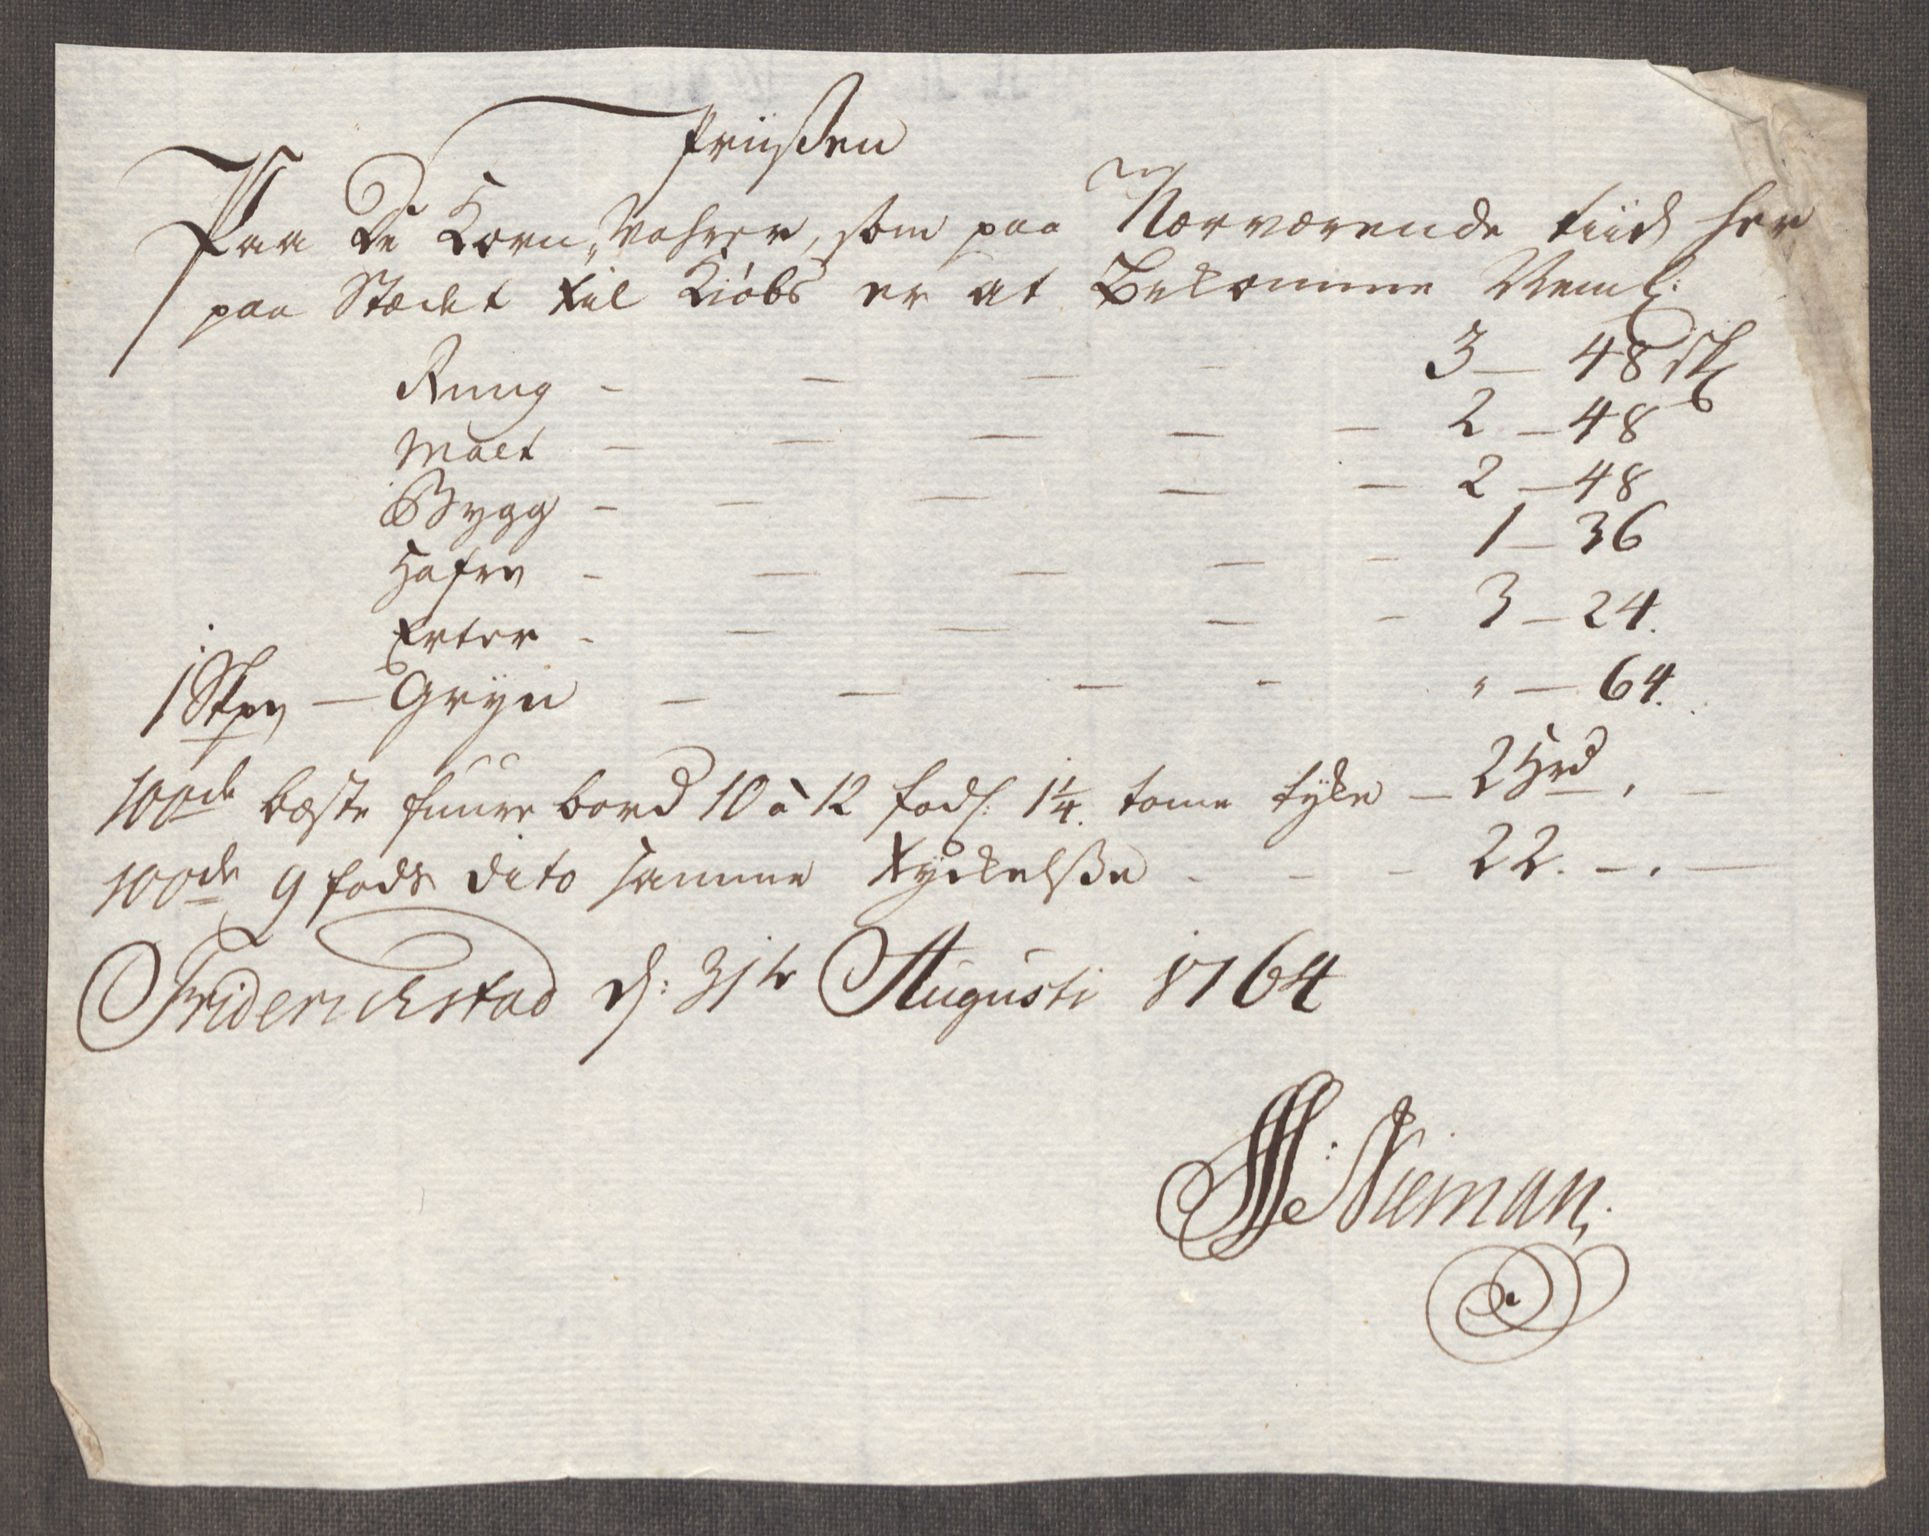 Priisen
Paa De Korn, Vahrer, som paa Nærværende tiid her
paa Stædet til Kiøbs er at Bekomme Neml:
Rug - - - - 3 — 48 sk
Malt - - - - - 2 — 48
Bygg - - - - - 2 — 48
Hafre - - - - - 1 — 36
Erter - - - - - 3 — 24.
1 Skpe — Gryn - - - - " — 64.
100de bæste fuure bord 10 à 12 fods: 1¼ tome tyke — 25rd . —
100de 9 fods dito samme tyckelsse - - - 22. — . —
Friderichstad d: 31te Augusti 1764
Nieman